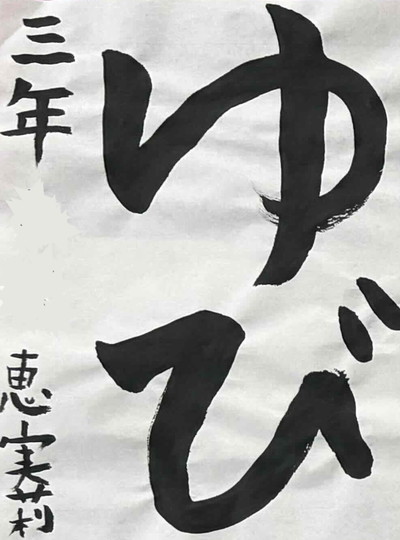 ゆび
三年 恵実莉